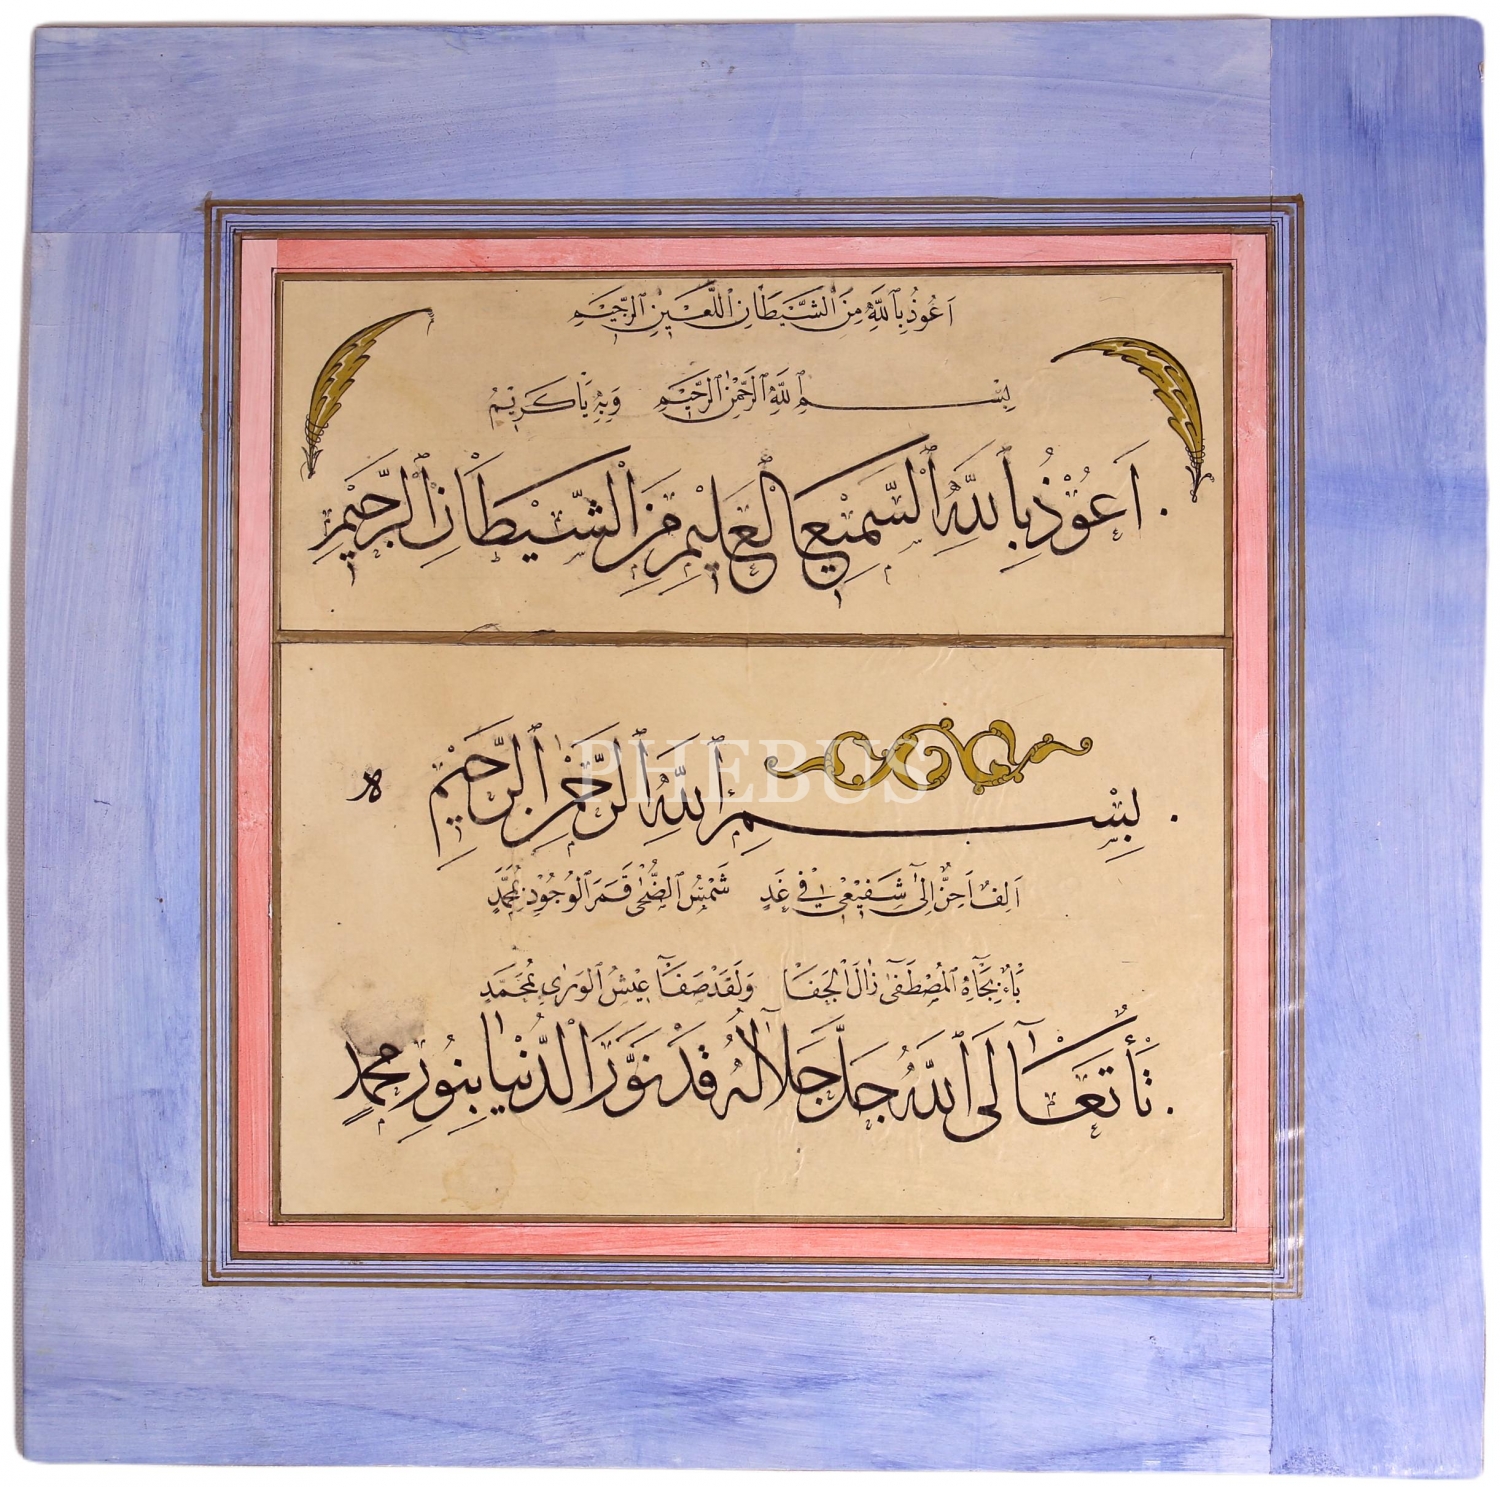 اَعُوذُ بِاللّٰهِ مِنَ الشَّيْطَانِ اللَّعِينِ الرَّجِيْمِ
بِسْمِ اللّٰهِ الرَّحْمٰنِ الرَّحِيْمِ وَبِهِ يَا كَرِيْمُ
اَعُوْذُ بِاللّٰهِ السَّمِيْعِ الْعَلِيْمِ مِنَ الشَّيْطَانِ الرَّجِيْمِ
PHEBUS
بِسْمِ اللّٰهِ الرَّحْمٰنِ الرَّحِيْمِ
اَلِفٌ اَحِنُّ اِلٰى شَفِيْعِيْ فِيْ غَدٍ شَمْسُ الضُّحٰى قَمَرُ الْوُجُوْدِ مُحَمَّدٍ
بَاءٌ بِجَاهِ الْمُصْطَفٰى زَالَ الْجَفَا وَلَقَدْ صَفَا عَيْشُ الْوَرٰى بِمُحَمَّدٍ
تَاءٌ تَعَالَى اللّٰهُ جَلَّ جَلَالُهُ قَدْ نَوَّرَ الدُّنْيَا بِنُورِ مُحَمَّدٍ